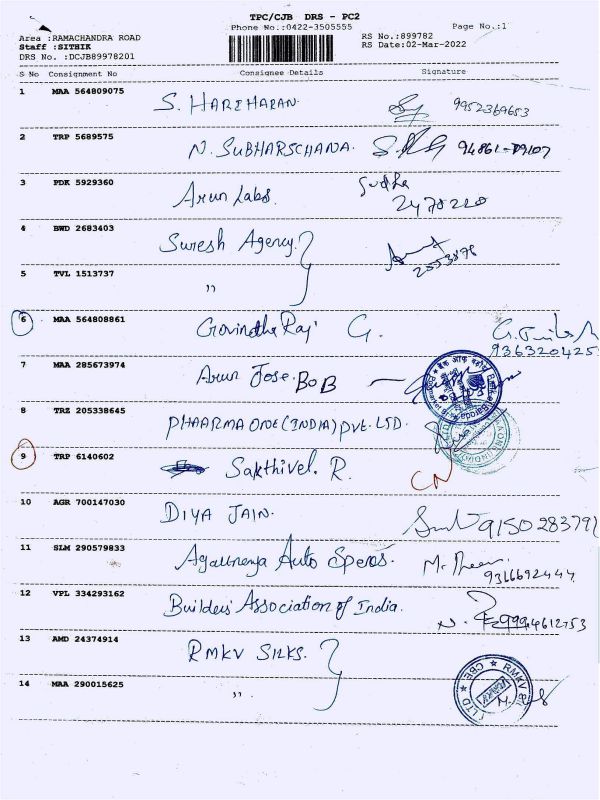 TPC/CJB DRS - PC2
Phone No.:0422-3505555
Page No.:1
Area :RAMACHANDRA ROAD
RS No.:899782
Staff :SITHIK
RS Date:02-Mar-2022
DRS No. :DCJB89978201
S No Consignment No Consignee Details Signature
1 MAA 564809075 S. HARIHARAN 9952369653
2 TRP 5689575 N. SUBHARSCHANA.
3 PDK 5929360 Arun Labs. Sudha
2478220
4 BWD 2683403 Suresh Agency.
5 TVL 1513737 "
6 MAA 564808861 Govindha Raj G.
7 MAA 285673974 Arun Jose. BOB
8 TRZ 205338645 PHAARMA ONE (INDIA) PVT. LTD.
9 TRP 6140602 Sakthivel. R. CN
10 AGR 700147030 DIYA JAIN.
11 SLM 290579833 Auto Speros.
9366692444
12 VPL 334293162 Builders Association of India.
13 AMD 24374914 RMKV SILKS.
RMKV
14 MAA 290015625 "